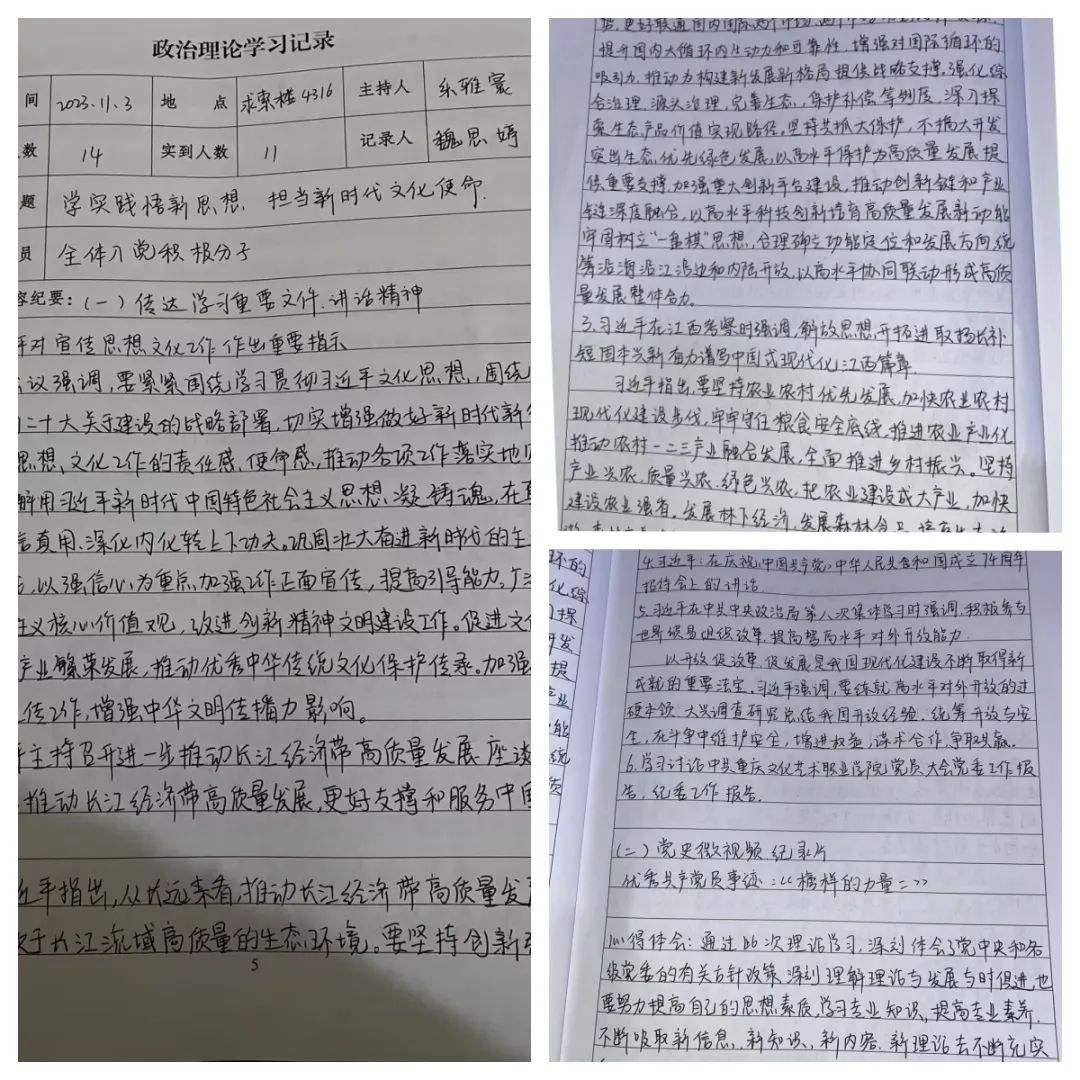 政治理论学习记录
间 2023.11.3 地 点 求索楼4316 主持人
数 14 实到人数 11 记录人 魏思婷
题 学实践悟新思想 担当新时代文化使命.
员 全体入党积极分子
容纪要:(一)传达学习重要文件.讲话精神
平对宣传思想文化工作作出重要指示
议强调,要紧紧围绕学习贯彻习近平文化思想,围绕
二十大关于建设的战略部署,切实增强做好新时代新
思想、文化工作的责任感,使命感,推动各项工作落实地
解用习近平新时代中国特色社会主义思想凝铸魂,在
信真用、深化内化转上下功夫。巩固壮大奋进新时代的主
,以强信心为重点加强工作正面宣传,提高引导能力,广
主义核心价值观,改进创新精神文明建设工作。促进文
产业繁荣发展,推动优秀中华传统文化保护传承。加强
传工作,增强中华文明传播力影响。
平主持召开进一步推动长江经济带高质量发展座谈
推动长江经济带高质量发展,更好支撑和服务中国
近平指出,从长远来看,推动长江经济带高质量发
于长江流域高质量的生态环境。要坚持创新
5
更好联通国内国际两个市场
提升国内大循环内生动力和可靠性,增强对国际循环的
吸引力.推动力构建新发展新格局提供战略支撑.强化综
合治理,源头治理,完善生态,保护补偿等制度,深刀探
索生态产品价值实现路径。坚持共抓大保护,不搞大开发
突出生态优先绿色发展,以高水平保护为高质量发展提
供重要支撑.加强重大创新平台建设,推动创新链和产业
链深度融合,以高水平科技创新培育高质量发展新动能
牢固树立"一盘棋"思想,合理确立功能定位和发展方向,统
筹沿海沿江沿边和内陆开放,以高水平协同联动形成高质
量发展整体合力。
3.习近平在江西考察时强调,解放思想,开拓进取扬长补
短固本兴新奋力谱写中国式现代化江西篇章
习近平指出,要坚持农业农村优先发展,加快农业农村
现代化建设步伐,牢牢守住粮食安全底线,推进农业产业化
推动农村一二三产业融合发展,全面推进乡村振兴。坚持
产业兴农.质量兴农.绿色兴农,把农业建设成大产业,加快
建设农业强省。发展林下经济,发展森林食品
4.习近平:在庆祝中国共产党,中华人民共和国成立74周年
招待会上的讲话.
5.习近平在中共中央政治局第八次集体学习时强调,积极参与
世界贸易组织改革.提高驾高水平对外开放能力.
以开放促改革,促发展是我国现代化建设不断取得新
成就的重要法宝。习近平强调,要练就高水平对外开放的过
硬本领.大兴调查研究总结我国开放经验.统筹开放与安
全,在斗争中维护安全,增进权益,谋求合作,争取共赢。
6.学习讨论中共重庆文化艺术职业学院党员大会党委工作报
告,纪委工作报告.
(二)党史微视频.纪录片
优秀共产党员事迹:《榜样的力量二》
心得体会:通过此次理论学习,深刻体会了党中央和各
级党委的有关方针政策,深刻理解理论与发展与时俱进,也
要努力提高自己的思想素质,学习专业知识,提高专业素养.
不断吸取新信息、新知识、新内容.新理论去不断充实